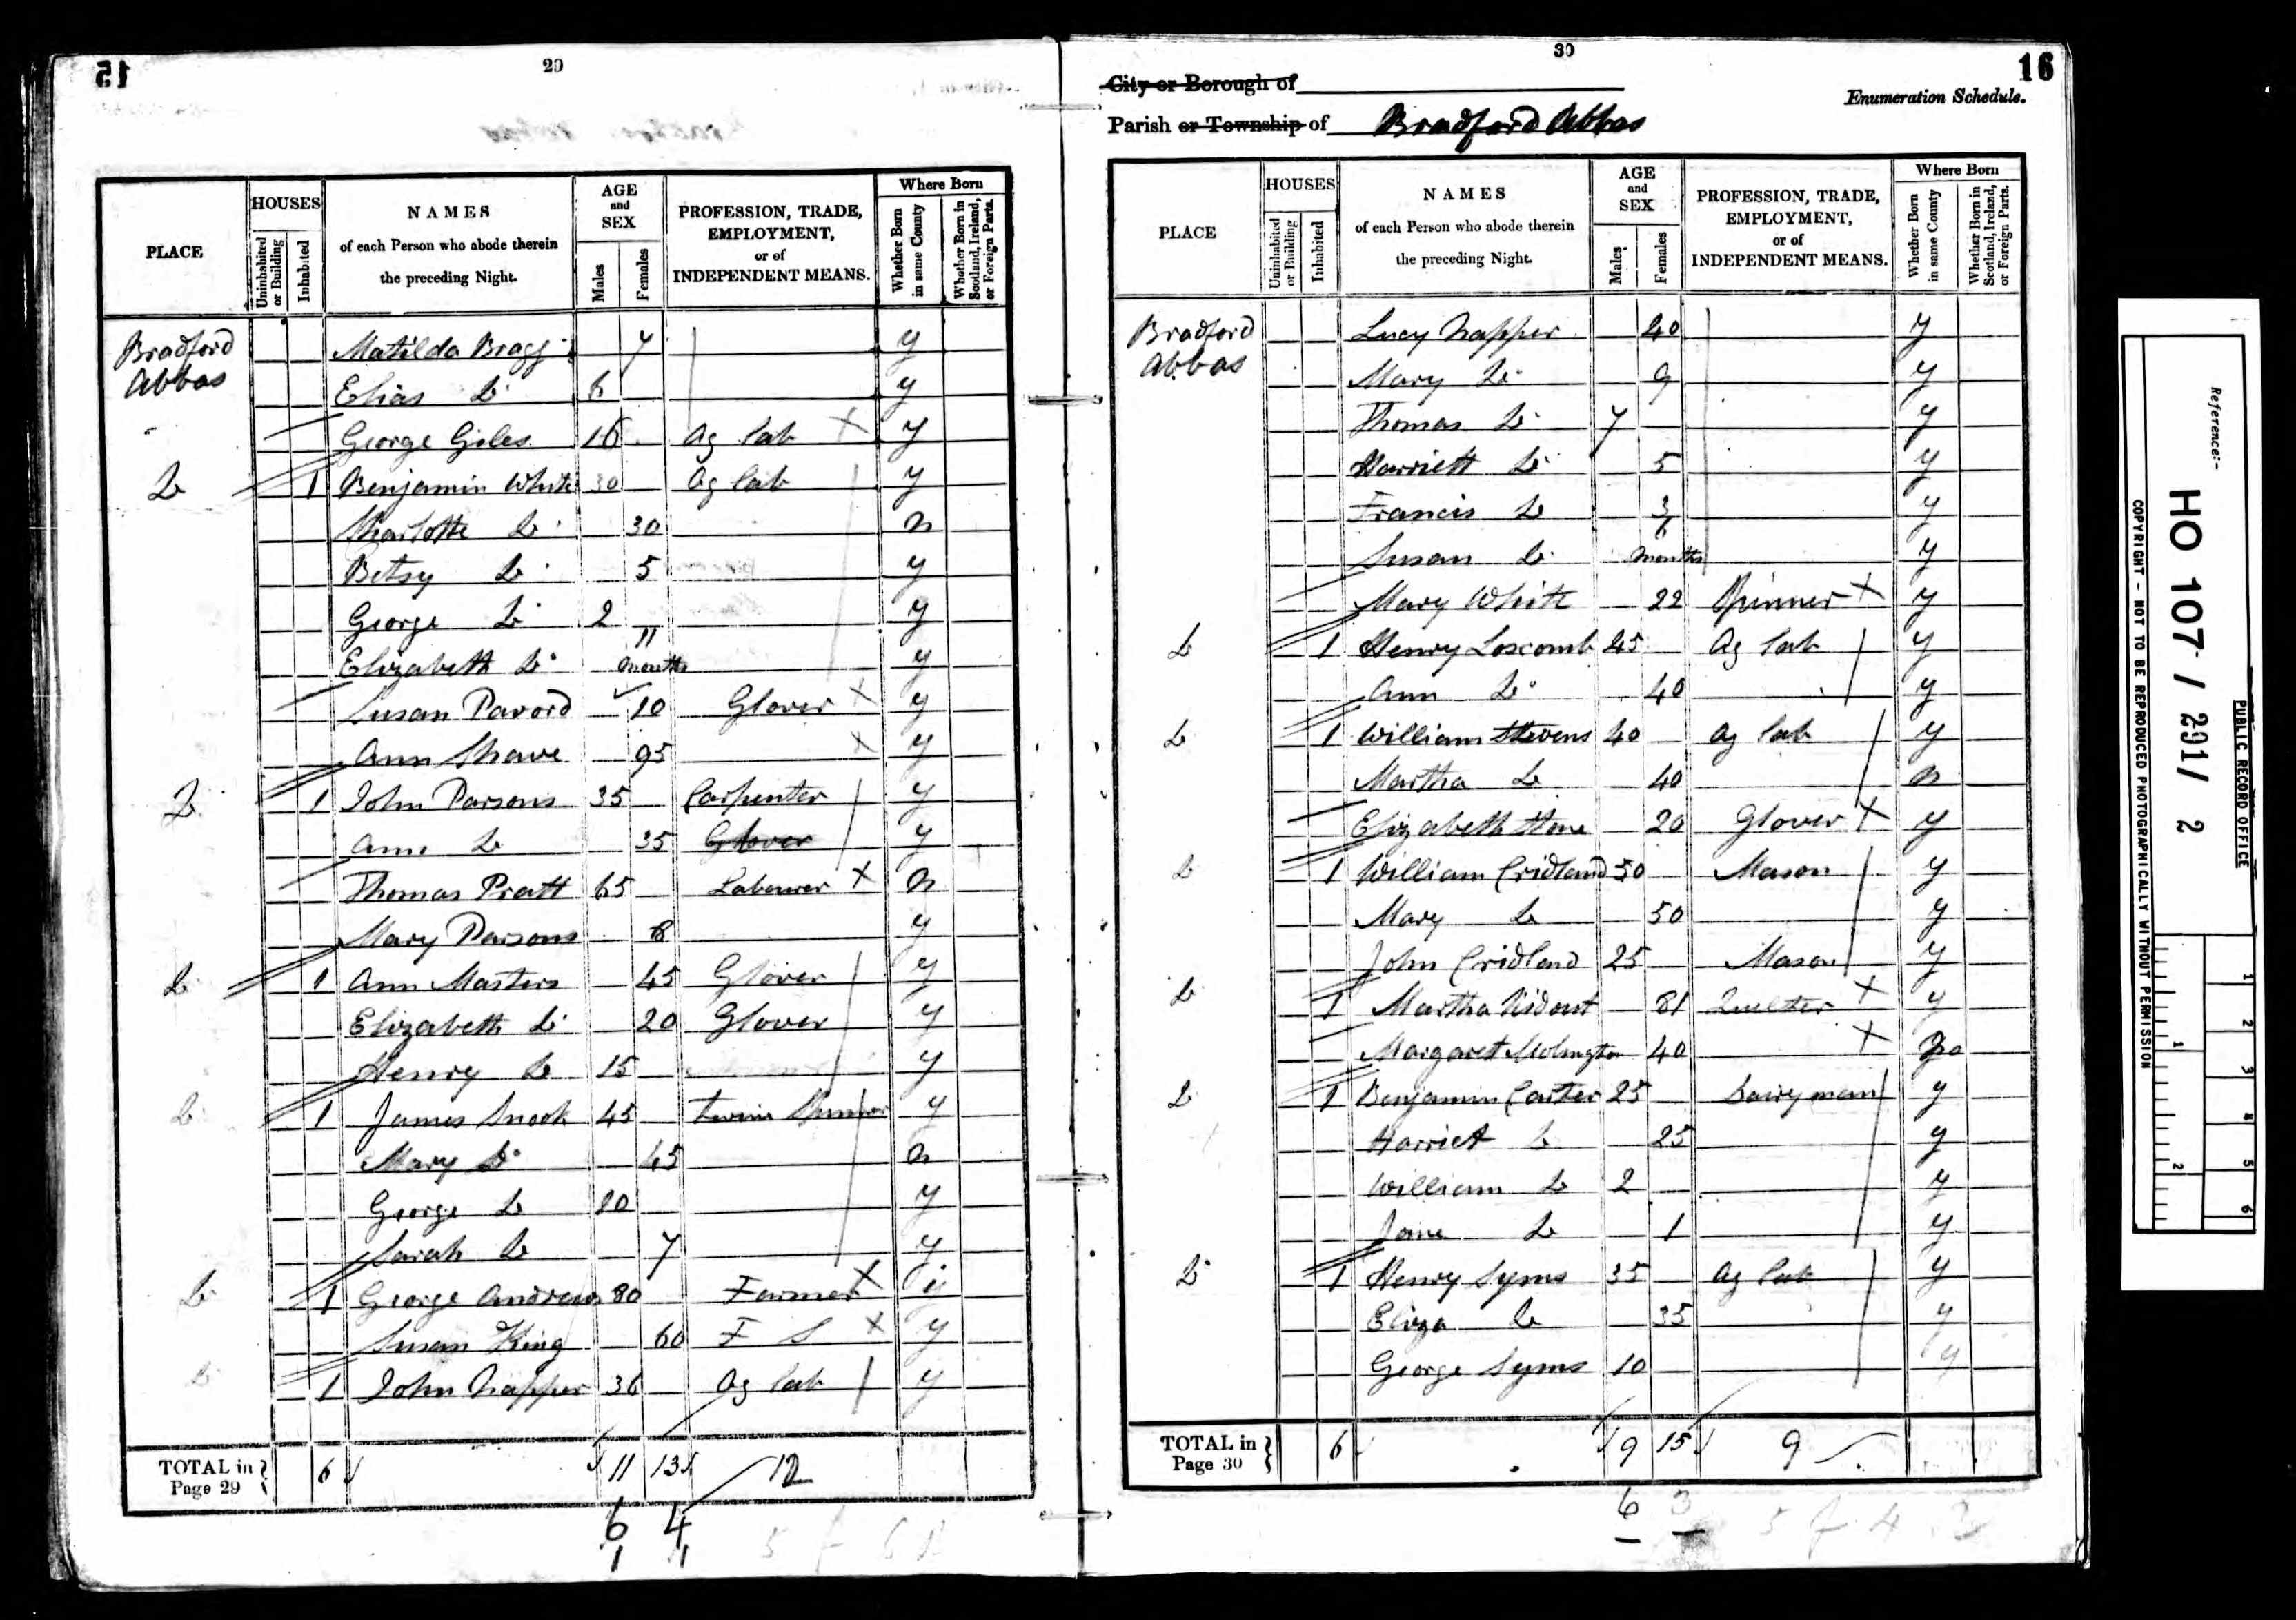 15
29
PLACE
HOUSES
Uninhabited or Building
Inhabited
NAMES
of each Person who abode therein
the preceding Night.
AGE
and
SEX
Males
Females
PROFESSION, TRADE,
EMPLOYMENT,
or of
INDEPENDENT MEANS.
Where Born
Whether Born in same County
Whether Born in Scotland, Ireland, or Foreign Parts.
Bradford Matilda Bragg 7 y
Abbas Elias Do 6 y
George Giles 16 Ag Lab X y
Do 1 Benjamin White 30 Ag Lab y
Charlotte Do 30 n
Betsy Do 5 y
George Do 2 y
Elizabeth Do 11 months y
Susan Pavord 10 Glover X y
Ann Shave 95 X y
Do 1 John Parsons 35 Carpenter y
Ann Do 35 Glover y
Thomas Pratt 65 Labourer X n
Mary Parsons 8 y
Do 1 Ann Masters 45 Glover y
Elizabeth Do 20 Glover y
Henry Do 15 y
Do 1 James Snook 45 Twine Spinner y
Mary Do 45 n
George Do 20 y
Sarah Do 7 y
Do 1 George Andrews 80 Farmer X y
Susan King 60 F S X y
Do 1 John Napper 36 Ag Lab y
TOTAL in
Page 29 6 11 13 12
6 4
1 1
30
16
City or Borough of
Enumeration Schedule.
Parish or Township of Bradford Abbas
PLACE
HOUSES
Uninhabited or Building
Inhabited
NAMES
of each Person who abode therein
the preceding Night.
AGE
and
SEX
Males
Females
PROFESSION, TRADE,
EMPLOYMENT,
or of
INDEPENDENT MEANS.
Where Born
Whether Born in same County
Whether Born in Scotland, Ireland, or Foreign Parts.
Bradford Lucy Napper 40 y
Abbas Mary Do 9 y
Thomas Do 7 y
Harriett Do 5 y
Francis Do 3 y
Susan Do 6 months y
Mary White 22 Spinner X y
Do 1 Henry Loscomb 45 Ag Lab y
Ann Do 40 y
Do 1 William Stevens 40 Ag Lab y
Martha Do 40 n
Elizabeth Hone 20 Glover X y
Do 1 William Cridland 50 Mason y
Mary Do 50 y
John Cridland 25 Mason y
Do 1 Martha Ridout 81 Quilter X y
Margaret 40 X No
Do 1 Benjamin Carter 25 Dairyman y
Harriet Do 25 y
William Do 2 y
Jane Do 1 y
Do 1 Henry Syms 35 Ag Lab y
Eliza Do 35 y
George Syms 10 y
TOTAL in
Page 30 6 9 15 9
6 3
Reference:-
HO 107 / 291 / 2
PUBLIC RECORD OFFICE
COPYRIGHT - NOT TO BE REPRODUCED PHOTOGRAPHICALLY WITHOUT PERMISSION
1 2 3 4 5 6
1 2